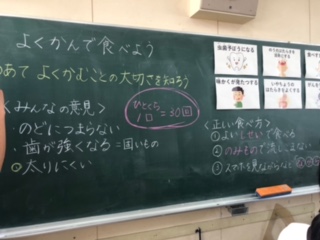 よくかんで食べよう
めあて よくかむことの大切さを知ろう
<みんなの意見>
・のどにつまらない
・歯が強くなる = 固いもの
太りにくい
ひとくち
1口=30回
虫歯予防になる
味かくが発たつする
<正しい食べ方>
①よいしせいで食べる
②のみもので流しこまない
③スマホを見ながらなど